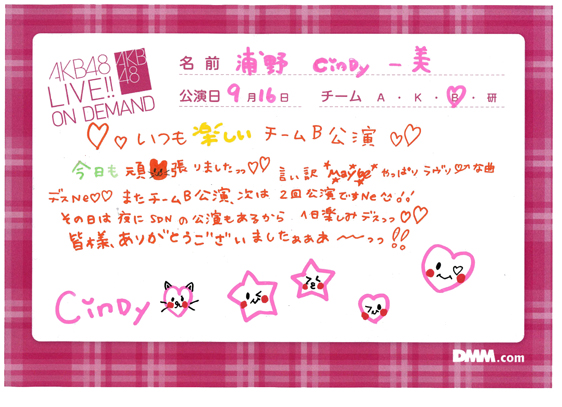 AKB48
LIVE!!
ON DEMAND
AKB
48
名前 浦野 Cindy 一美
公演日 9月16日 チーム A・K・B・研
♡♡いつも楽しいチームB公演♡♡
今日も頑張りましたっっ♡♡ 言い訳Maybeやっぱりラヴリ♡な曲
デスNe♡♡またチームB公演、次は2回公演ですNe!!
その日は夜にSDNの公演もあるから1日楽しみデスっっ♡♡
皆様、ありがとうございましたぁぁぁ〜〜っっ!!
Cindy
DMM.com